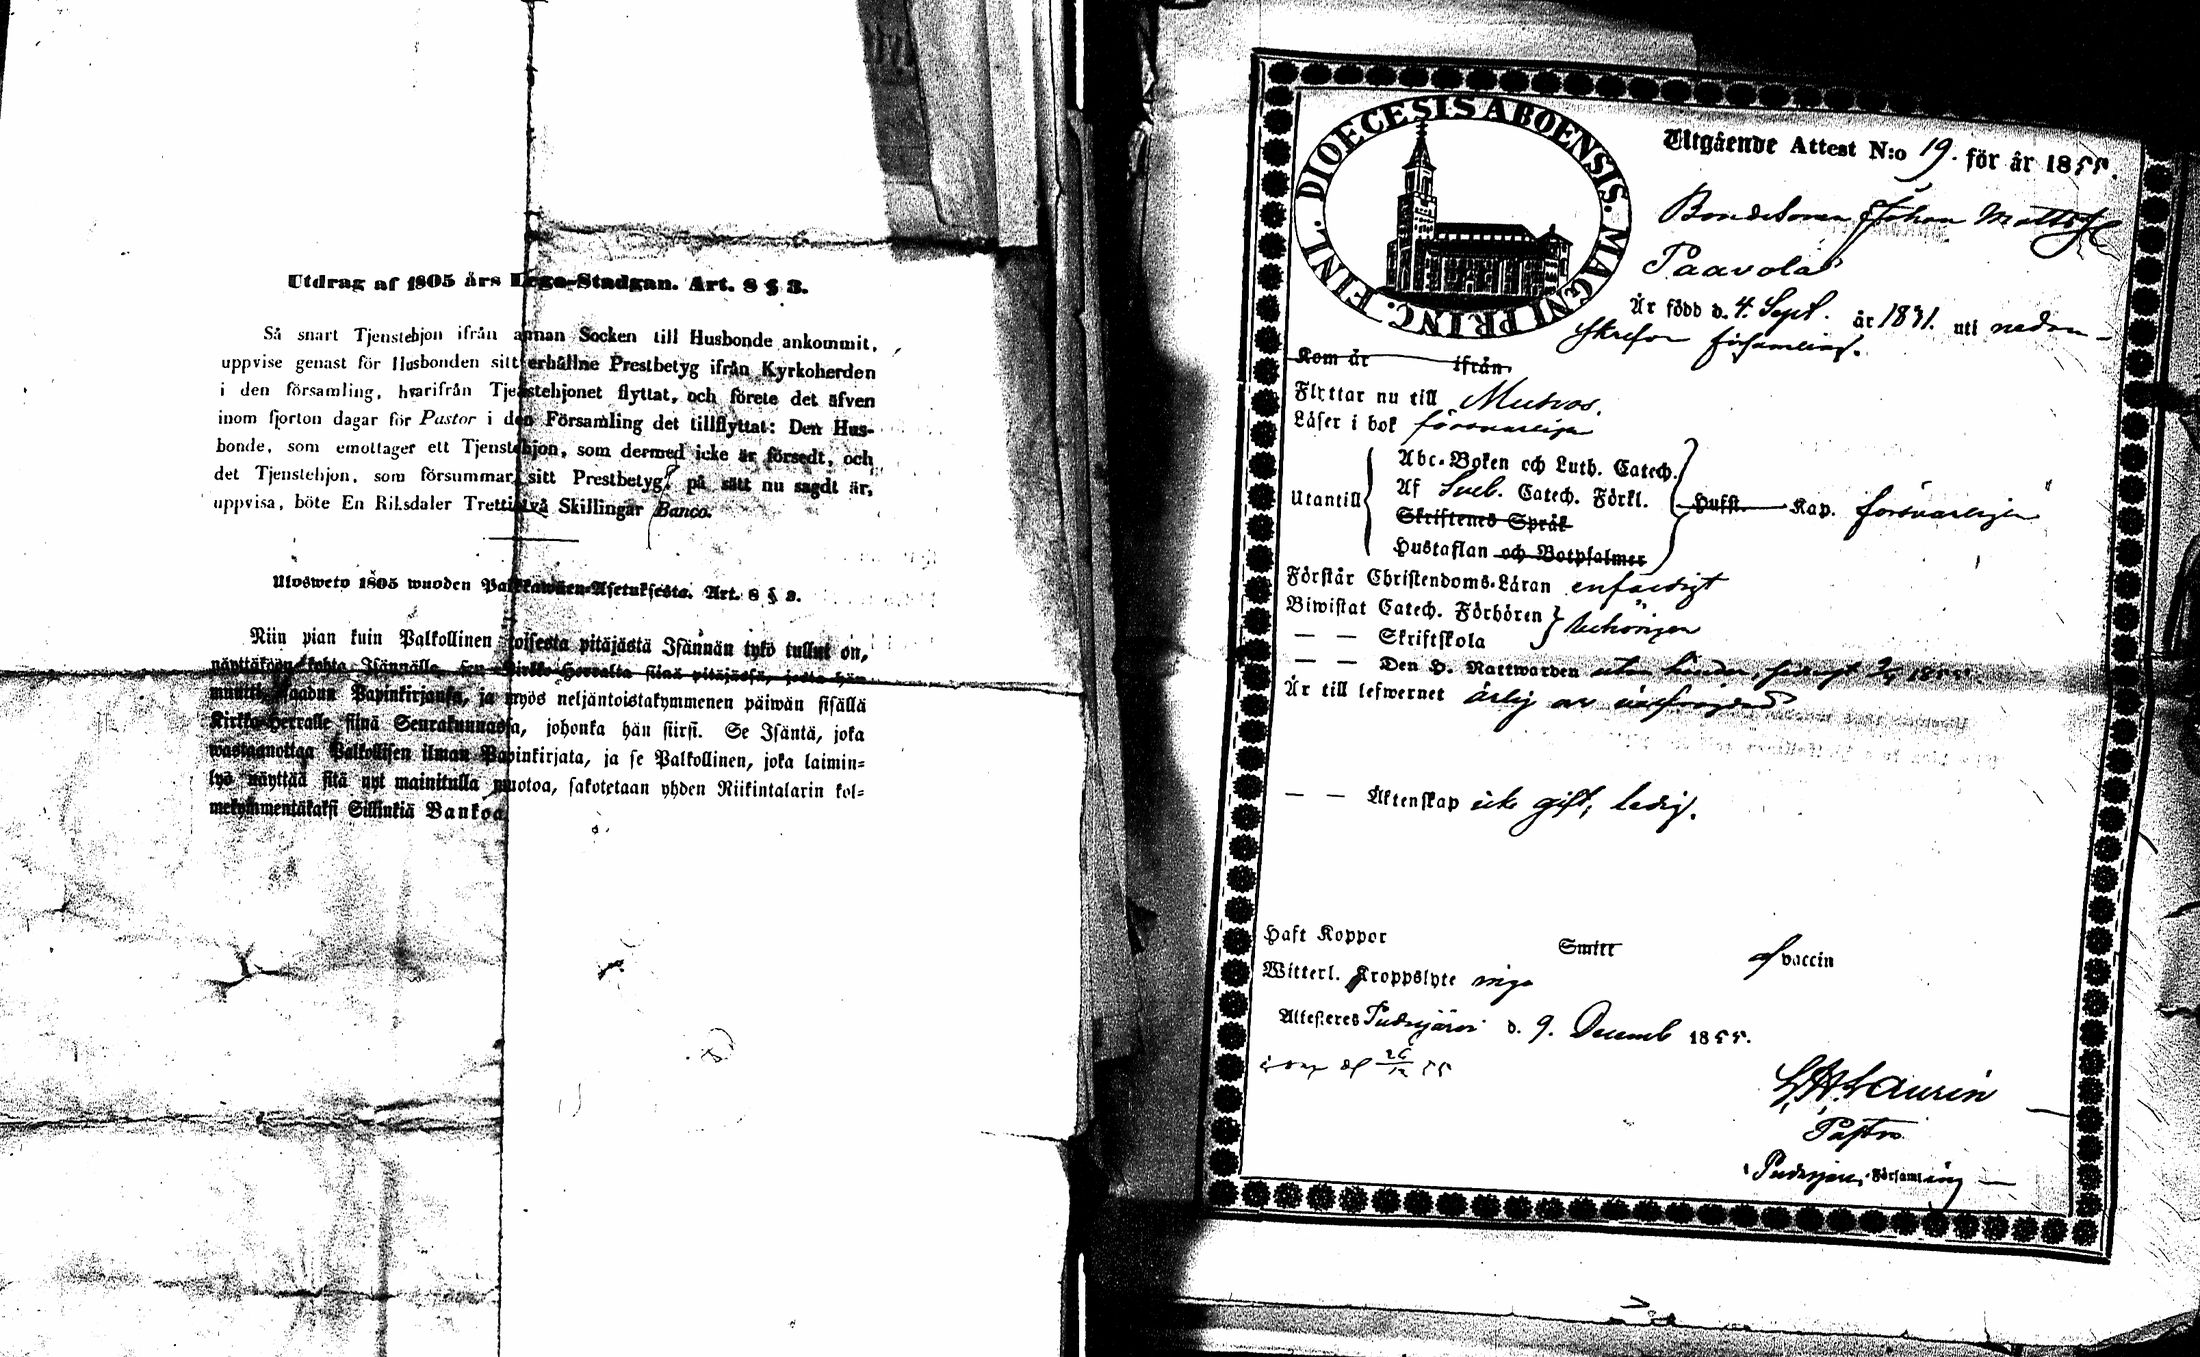 Utdrag af 1805 års Lego-Stadgan. Art. 8 § 3.
Så snart Tjenstehjon ifrån annan Socken till Husbonde ankommit,
uppvise genast för Husbonden sitt erhållne Prestbetyg ifrån Kyrkoherden
i den församling, hvarifrån Tjenstehjonet flyttat, och förete det äfven
inom fjorton dagar för Pastor i den Församling det tillflyttat: Den Hus-
bonde, som emottager ett Tjenstehjon, som dermed icke är försedt, och
det Tjenstehjon, som försummar sitt Prestbetyg, på sätt nu sagdt är,
uppvisa, böte En Riksdaler Trettiotvå Skillingar Banco.
Ulosweto 1805 wuoden Palkkawäen-Asetuksesta. Art. 8 §
Niin pian kuin Palkollinen toisesta pitäjästä Isännän tykö tullut on,
näyttäköön kohta Isännälle, sen Kirkko-Herralta siinä pitäjässä, josta hän
muutti, saadun Papinkirjansa, ja myös neljäntoistakymmenen päiwän sisällä
Kirkko-Herralle siinä Seurakunnassa, johonka hän siirsi. Se Isäntä, joka
wastaanottaa Palkollisen ilman Papinkirjata, ja se Palkollinen, joka laimin-
lyö näyttää sitä nyt mainitulla muotoa, sakotetaan yhden Riikintalarin kol-
mekymmentäkaksi Sillinkiä Bankoa
DIOECESIS ABOENSIS. MAGNI PRINC. FINL.
Utgående Attest N:o 19. för år 1855.
Bondesonen Johan Matts
Paavola
Är född d. 4. Sept. år 1831. uti nedan-
skrefne församling.
Kom år ifrån
Flyttar nu till Muhos.
Läser i bok försvarligen
Abc-Boken och Luth. Catech.
Utantill Af Sveb. Catech. Förkl. Hufst. Kap. försvarligen
Skriftenes Språk
Hustaflan och Botpsalmer
Förstår Christendoms-Läran enfaldigt
Biwistat Catech. Förhören behörigen
— — Skriftskola
— — Den H. Nattwarden utan hinder, senast 1855.
Är till lefwernet ärlig
— — Äktenskap icke gift, ledig.
Haft Koppor Smitt af vaccin
Witterl. Kroppslyte inga
Attesteres Pudasjärvi d. 9. Decemb 1855.
26/12 55
Laurin
Pastor
Församling